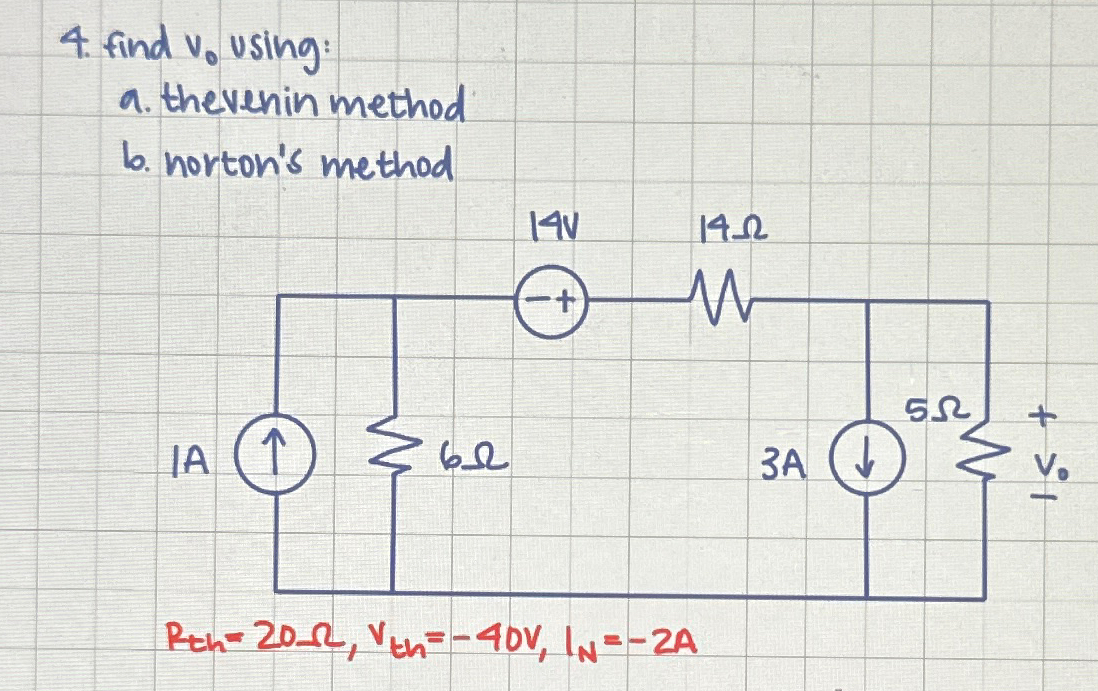 4. find v₀ using:
a. thevenin method
b. norton's method
14V
14Ω
- +
1A
6Ω
3A
5Ω
+
v₀
-
Rth = 20Ω, Vth = -40V, IN = -2A